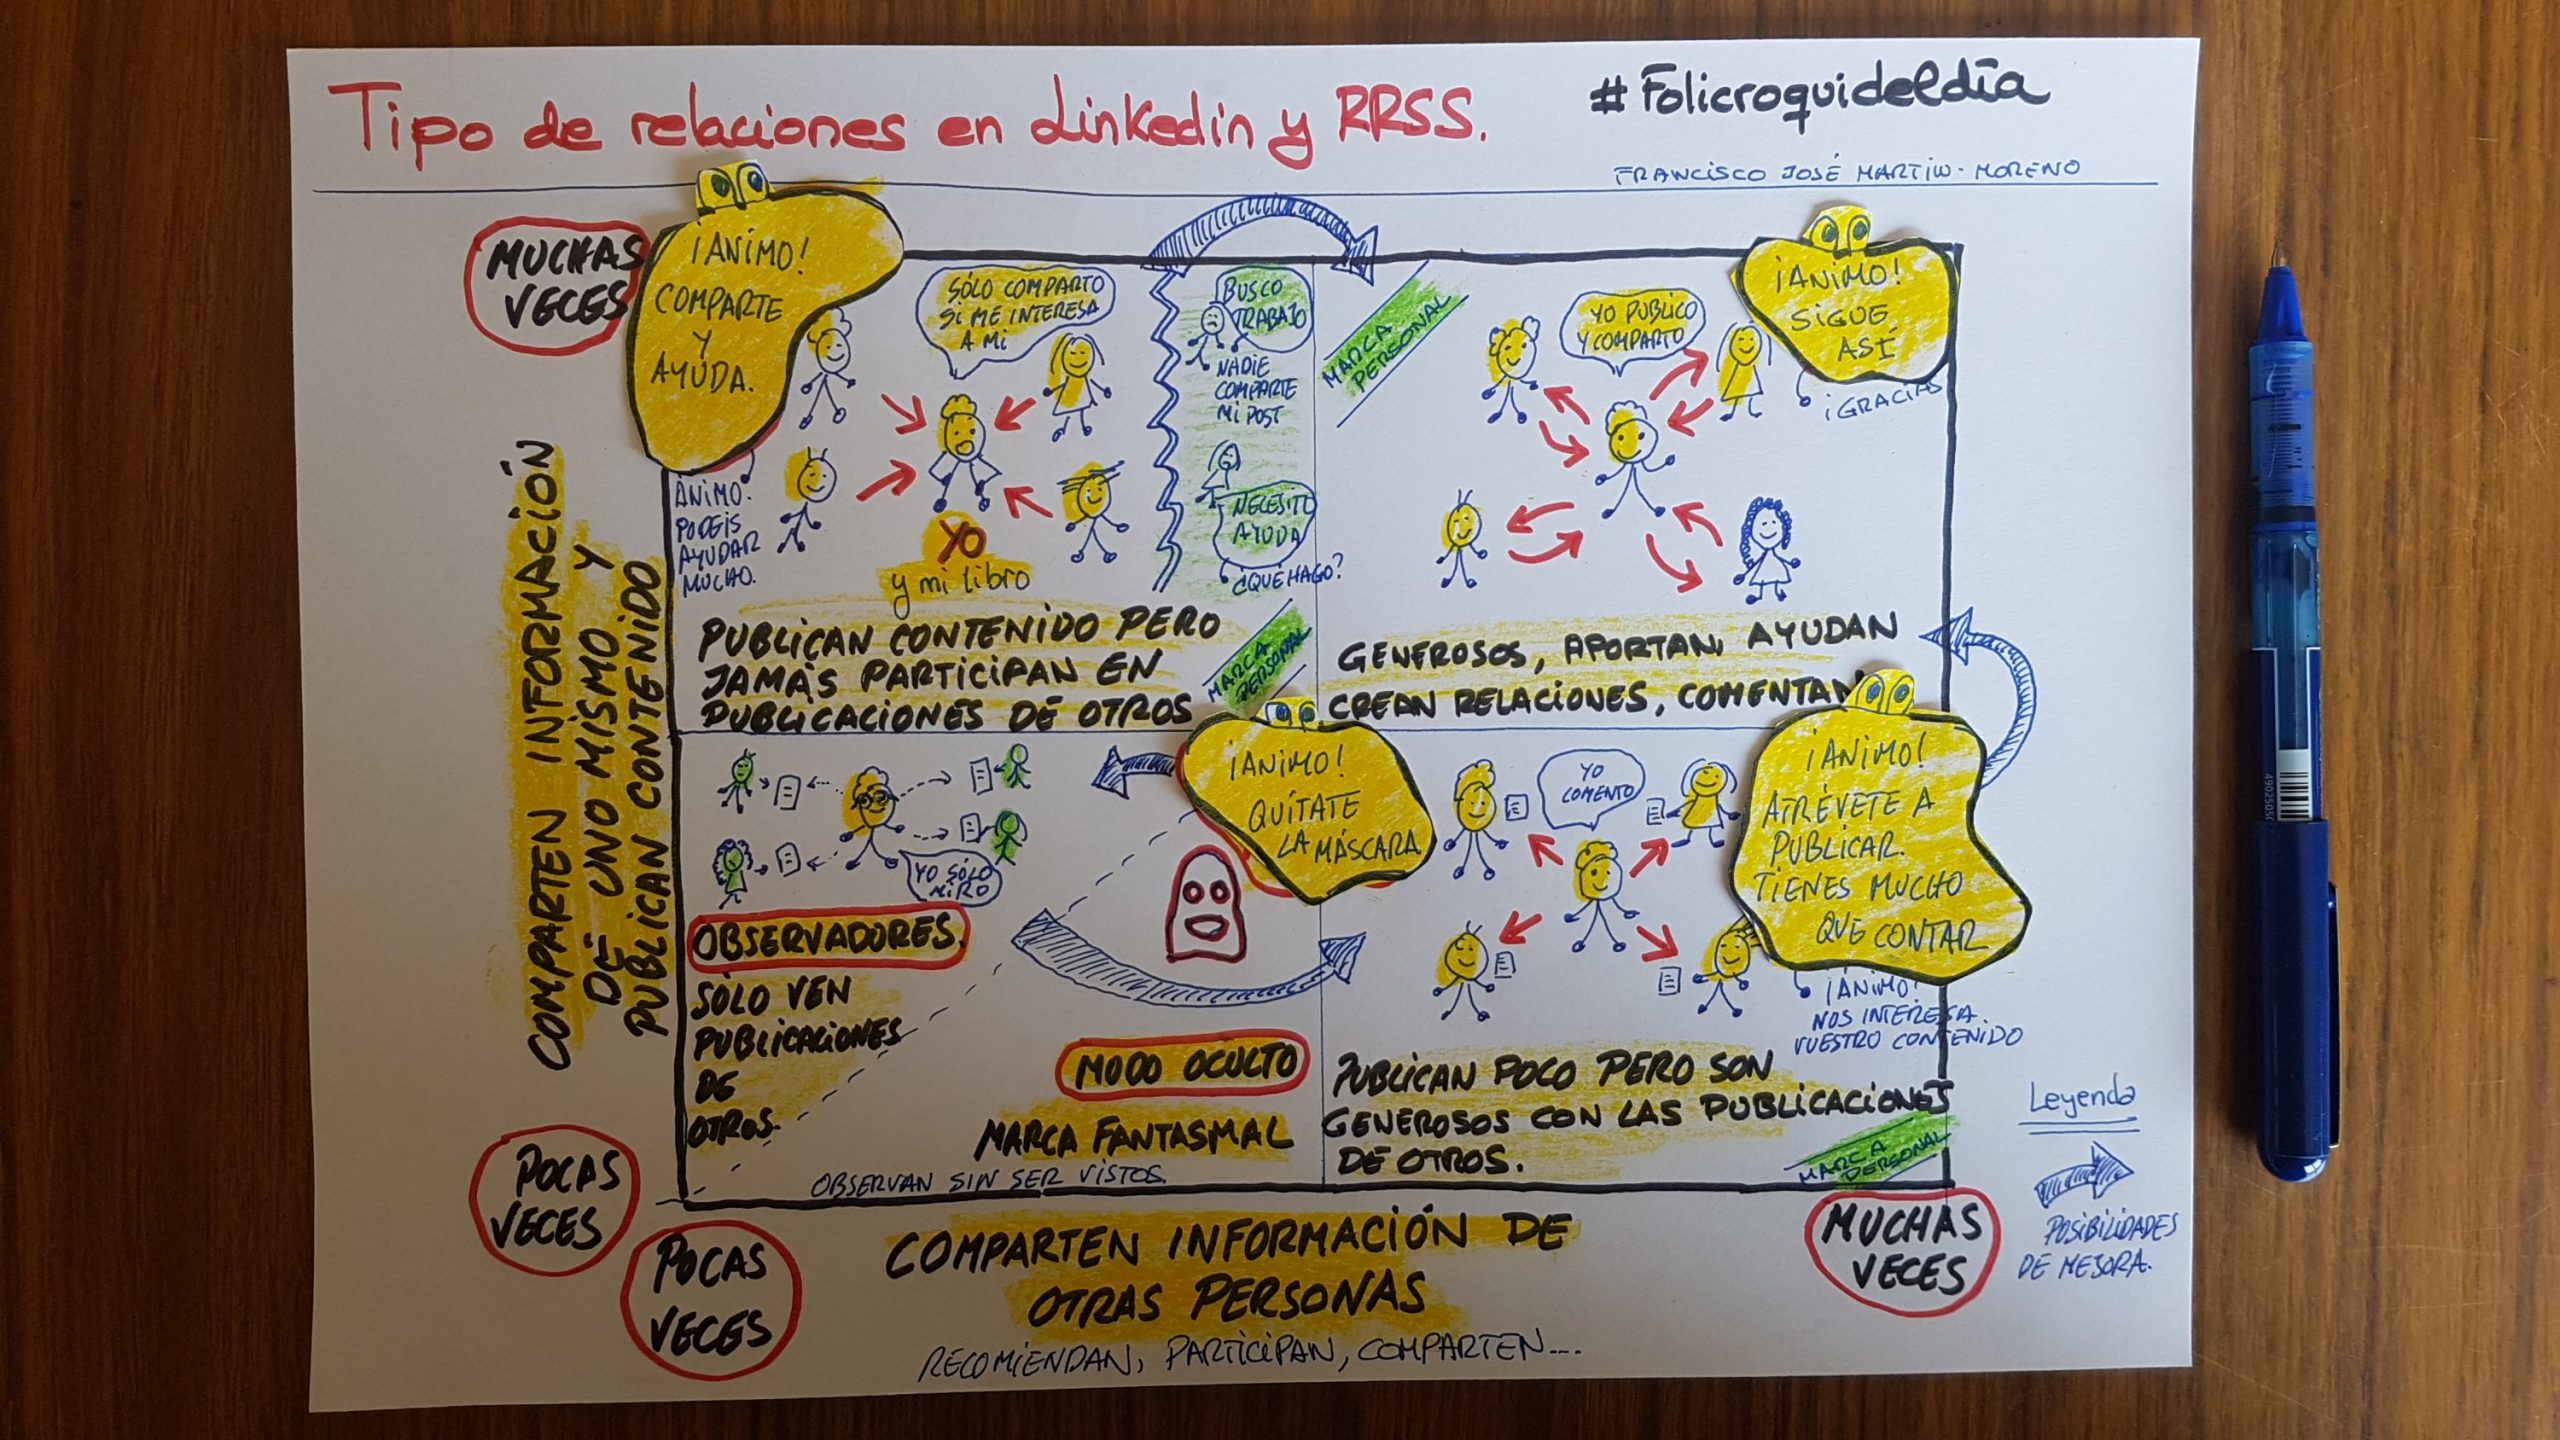 Tipo de relaciones en Linkedin y RRSS.
#Folicroquideldía
FRANCISCO JOSÉ MARTIN-MORENO
MUCHAS
VECES
¡ANIMO!
COMPARTE
Y
AYUDA.
ANIMO.
PODEIS
AYUDAR
MUCHO.
SÓLO COMPARTO
SI ME INTERESA
A MI
YO
y mi libro
BUSCO
TRABAJO
NADIE
COMPARTE
MI POST
NECESITO
AYUDA
¿QUÉ HAGO?
PUBLICAN CONTENIDO PERO
JAMÁS PARTICIPAN EN
PUBLICACIONES DE OTROS
MARCA
PERSONAL
MARCA
PERSONAL
YO PUBLICO
Y COMPARTO
¡ANIMO!
SIGUE
ASÍ
¡GRACIAS
GENEROSOS, APORTAN, AYUDAN
CREAN RELACIONES, COMENTAN
COMPARTEN INFORMACIÓN
DE UNO MISMO Y
PUBLICAN CONTENIDO
YO SÓLO
MIRO
OBSERVADORES.
SÓLO VEN
PUBLICACIONES
DE
OTROS.
¡ANIMO!
QUÍTATE
LA MÁSCARA
MODO OCULTO
MARCA FANTASMAL
OBSERVAN SIN SER VISTOS.
YO
COMENTO
¡ANIMO!
ATRÉVETE A
PUBLICAR.
TIENES MUCHO
QUE CONTAR
¡ANIMO!
NOS INTERESA
VUESTRO CONTENIDO
PUBLICAN POCO PERO SON
GENEROSOS CON LAS PUBLICACIONES
DE OTROS.
MARCA
PERSONAL
POCAS
VECES
POCAS
VECES
COMPARTEN INFORMACIÓN DE
OTRAS PERSONAS
RECOMIENDAN, PARTICIPAN, COMPARTEN...
MUCHAS
VECES
Leyenda
POSIBILIDADES
DE MEJORA.